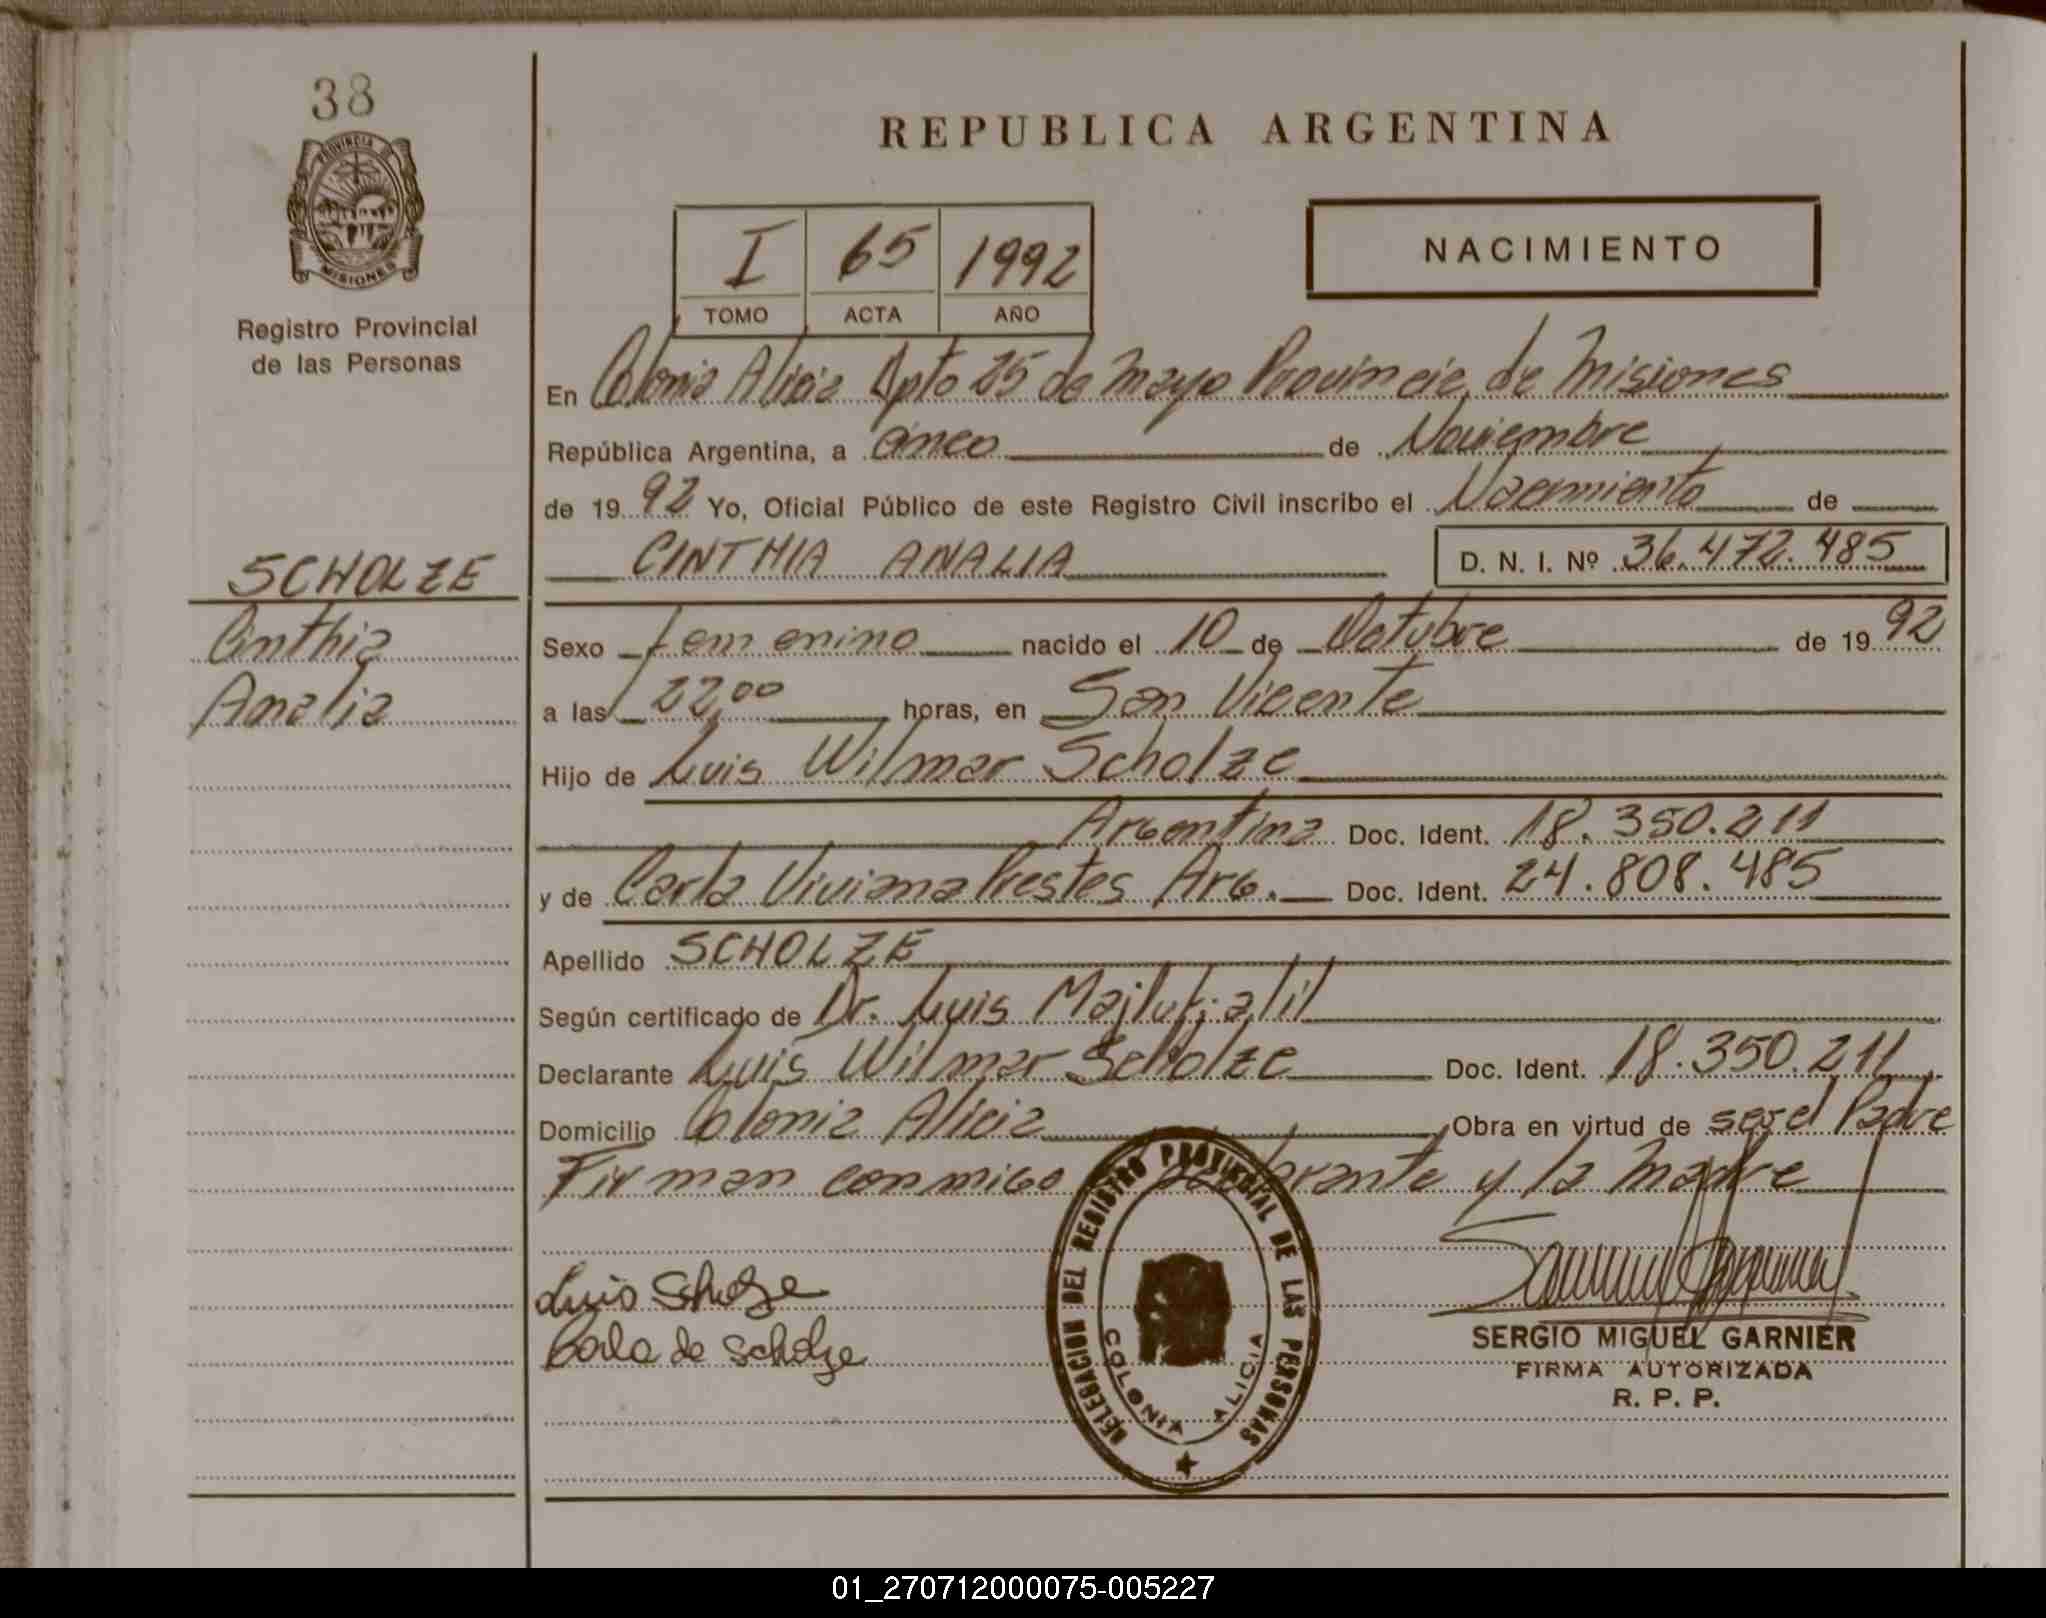 38
PROVINCIA DE
MISIONES
Registro Provincial
de las Personas
SCHOLZE
Cinthia
Analia
REPUBLICA ARGENTINA
I 65 1992
TOMO ACTA AÑO
NACIMIENTO
En Colonia Alicia Dpto 25 de Mayo Provincia de Misiones
República Argentina, a cinco de Noviembre
de 1992 Yo, Oficial Público de este Registro Civil inscribo el Nacimiento de
CINTHIA ANALIA D. N. I. Nº 36.472.485
Sexo femenino nacido el 10 de Octubre de 1992
a las 22,00 horas, en San Vicente
Hijo de Luis Wilmar Scholze
Argentina Doc. Ident. 18.350.211
y de Carla Viviana Prestes Arg. Doc. Ident. 24.808.485
Apellido SCHOLZE
Según certificado de Dr. Luis
Declarante Luis Wilmar Scholze Doc. Ident. 18.350.211
Domicilio Colonia Alicia Obra en virtud de ser el Padre
Firman conmigo declarante y la Madre
Luis Scholze
Carla de Scholze
DELEGACION DEL REGISTRO PROVINCIAL DE LAS PERSONAS
COLONIA ALICIA
SERGIO MIGUEL GARNIER
FIRMA AUTORIZADA
R. P. P.
01_270712000075-005227